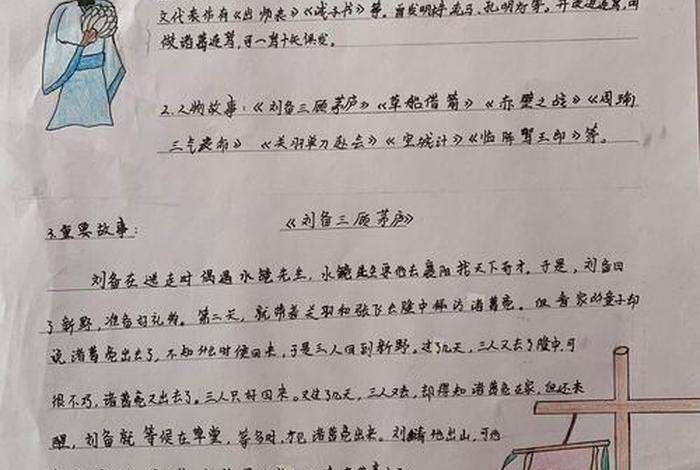 文代表作有《出师表》《诫子书》等。曾发明木牛流马、孔明灯等。并改造连弩，叫
做诸葛连弩，可一弩十矢俱发。
2.人物故事：《刘备三顾茅庐》《草船借箭》《赤壁之战》《周瑜
三气》《关羽单刀赴会》《空城计》《临阵骂王郎》等。
3.重要故事：
《刘备三顾茅庐》
刘备在逃走时偶遇水镜先生，水镜先生要他去襄阳找天下奇才。于是，刘备回
了新野，准备好礼物。第二天，就带着关羽和张飞去隆中拜访诸葛亮。但看家的童子却
说诸葛亮出去了，不知什么时候回来，于是三人回到新野。过了几天，三人又去了隆中，可
很不巧，诸葛亮又出去了。三人只好回来。又过了几天，三人又去，却得知诸葛亮在家，但还未
醒，刘备就等候在草堂，等多时，诸葛亮出来。刘请他出山，可他